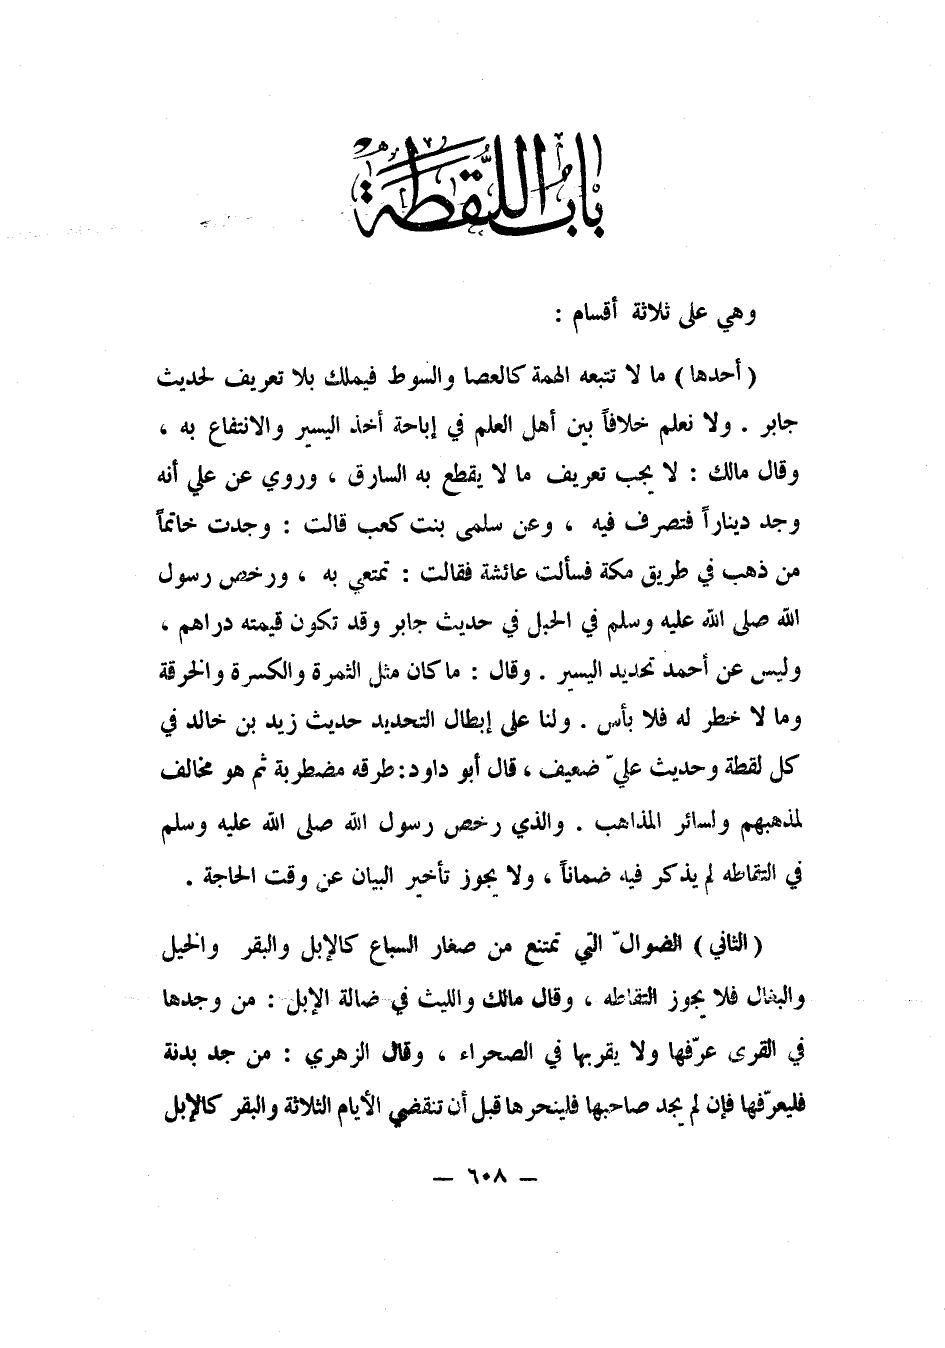 باب اللُّقَطَة
وهي على ثلاثة أقسام :
( أحدها ) ما لا تتبعه الهمة كالعصا والسوط فيملك بلا تعريف لحديث
جابر . ولا نعلم خلافاً بين أهل العلم في إباحة أخذ اليسير والانتفاع به ،
وقال مالك : لا يجب تعريف ما لا يقطع به السارق ، وروي عن علي أنه
وجد ديناراً فتصرف فيه ، وعن سلمى بنت كعب قالت : وجدت خاتماً
من ذهب في طريق مكة فسألت عائشة فقالت : تمتعي به ، ورخص رسول
الله صلى الله عليه وسلم في الحبل في حديث جابر وقد تكون قيمته دراهم ،
وليس عن أحمد تحديد اليسير . وقال : ما كان مثل الثمرة والكسرة والخرقة
وما لا خطر له فلا بأس . ولنا على إبطال التحديد حديث زيد بن خالد في
كل لقطة وحديث عليّ ضعيف ، قال أبو داود: طرقه مضطربة ثم هو مخالف
لمذهبهم ولسائر المذاهب . والذي رخص رسول الله صلى الله عليه وسلم
في التقاطه لم يذكر فيه ضماناً ، ولا يجوز تأخير البيان عن وقت الحاجة .
( الثاني ) الضوالّ التي تمتنع من صغار السباع كالإبل والبقر والخيل
والبغال فلا يجوز التقاطه ، وقال مالك والليث في ضالة الإبل : من وجدها
في القرى عرّفها ولا يقربها في الصحراء ، وقال الزهري : من جد بدنة
فليعرّفها فإن لم يجد صاحبها فلينحرها قبل أن تنقضي الأيام الثلاثة والبقر كالإبل
— ٦٠٨ —